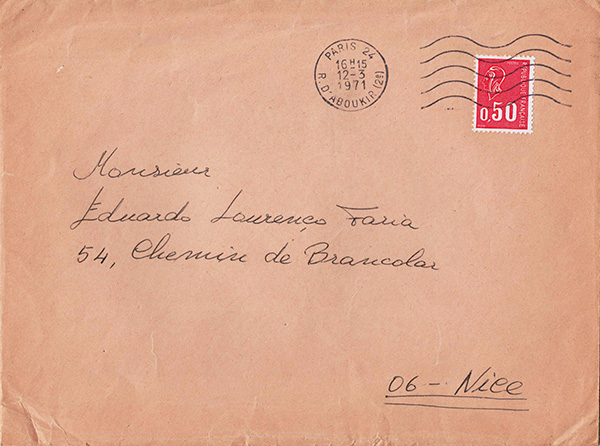 PARIS 24
16H15
12-3
1971
R. D'ABOUKIR (2e)
REPUBLIQUE FRANÇAISE
0,50
Monsieur
Eduardo Lourenço Faria
54, Chemin de Brancolar
06 - Nice